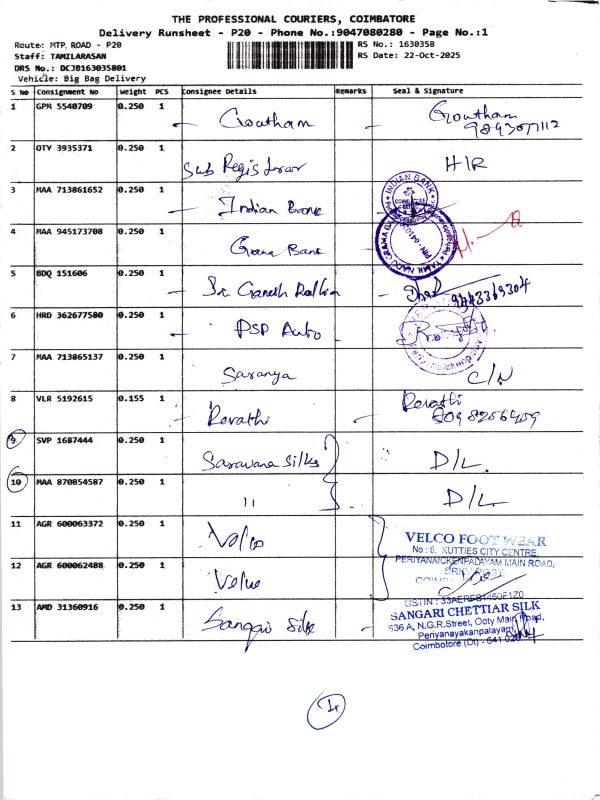 THE PROFESSIONAL COURIERS, COIMBATORE
Delivery Runsheet - P20 - Phone No.:9047080280 - Page No.:1
Route: MTP ROAD - P20 RS No.: 1630358
Staff: TAMILARASAN RS Date: 22-Oct-2025
DRS No.: DCJB163035801
Vehicle: Big Bag Delivery
S No Consignment No Weight PCS Consignee Details Remarks Seal & Signature
1 GPM 5540709 0.250 1 Gowtham Gowtham
9843077112
2 OTY 3935371 0.250 1 Sub Registrar H/R
3 MAA 713861652 0.250 1 Indian Bank INDIAN BANK
4 MAA 945173708 0.250 1 Grama Bank TAMIL NADU GRAMA BANK
5 BDQ 151606 0.250 1 Sri Ganesh
6 HRD 362677580 0.250 1 PSP Auto
7 MAA 713865137 0.250 1 Saranya C/N
8 VLR 5192615 0.155 1 Revathi Revathi
9 SVP 1687444 0.250 1 Saravana Silks D/L
10 MAA 870854587 0.250 1 " D/L
11 AGR 600063372 0.250 1 Velco VELCO FOOT WEAR
No : 6, KUTTIES CITY CENTRE,
PERIYANAICKENPALAYAM MAIN ROAD,
SRKV POST
12 AGR 600062488 0.250 1 Velco
13 AMD 31360916 0.250 1 Sangari Silk SANGARI CHETTIAR SILK
536 A, N.G.R.Street, Ooty Main Road,
Periyanayakanpalayam,
Coimbatore (Dt) - 641 020
4